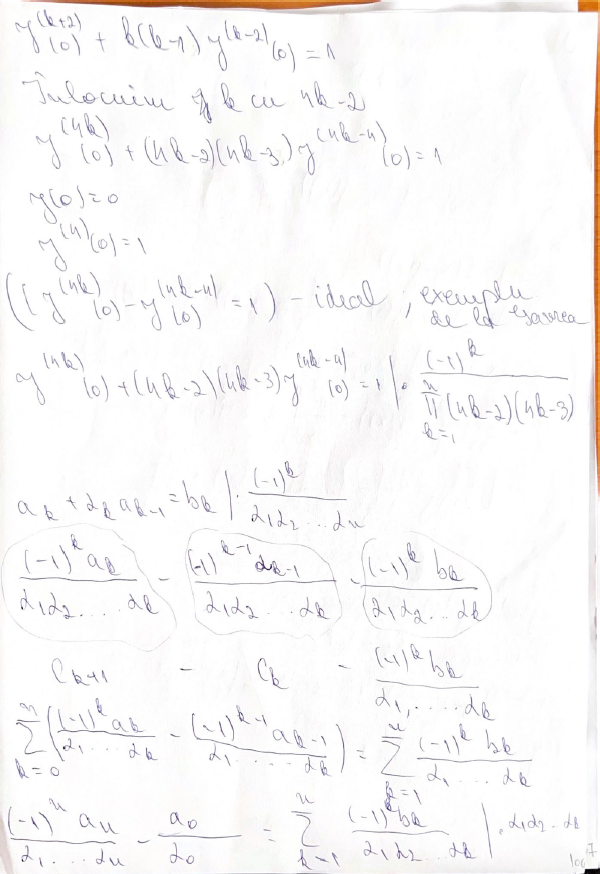 y^(k+2)(0) + k(k-1) y^(k-2)(0) = 1
Înlocuim k cu 4k-2
y^(4k)(0) + (4k-2)(4k-3) y^(4k-4)(0) = 1
y(0) = 0
y^(4)(0) = 1
([y^(4k)(0) - y^(4k-4)(0) = 1) - ideal ; exemplu
de la
y^(4k)(0) + (4k-2)(4k-3) y^(4k-4)(0) = 1 | · (-1)^k / ∏_{k=1}^{n} (4k-2)(4k-3)
a_k + α_k a_{k-1} = b_k | · (-1)^k / α_1 α_2 ... α_n
(-1)^k a_k / α_1 α_2 .... α_k - (-1)^{k-1} α_{k-1} / α_1 α_2 ... α_k - (-1)^k b_k / α_1 α_2 ... α_k
C_{k+1} - C_k - (-1)^k b_k / α_1, .... α_k
∑_{k=0}^{n} ((-1)^k a_k / α_1 ... α_k - (-1)^{k-1} a_{k-1} / α_1 ... α_k) = ∑_{k=1}^{n} (-1)^k b_k / α_1 ... α_k
(-1)^n a_n / α_1 ... α_n - a_0 / α_0 = ∑_{k-1}^{n} (-1)^k b_k / α_1 α_2 ... α_k | · α_1 α_2 ... α_k